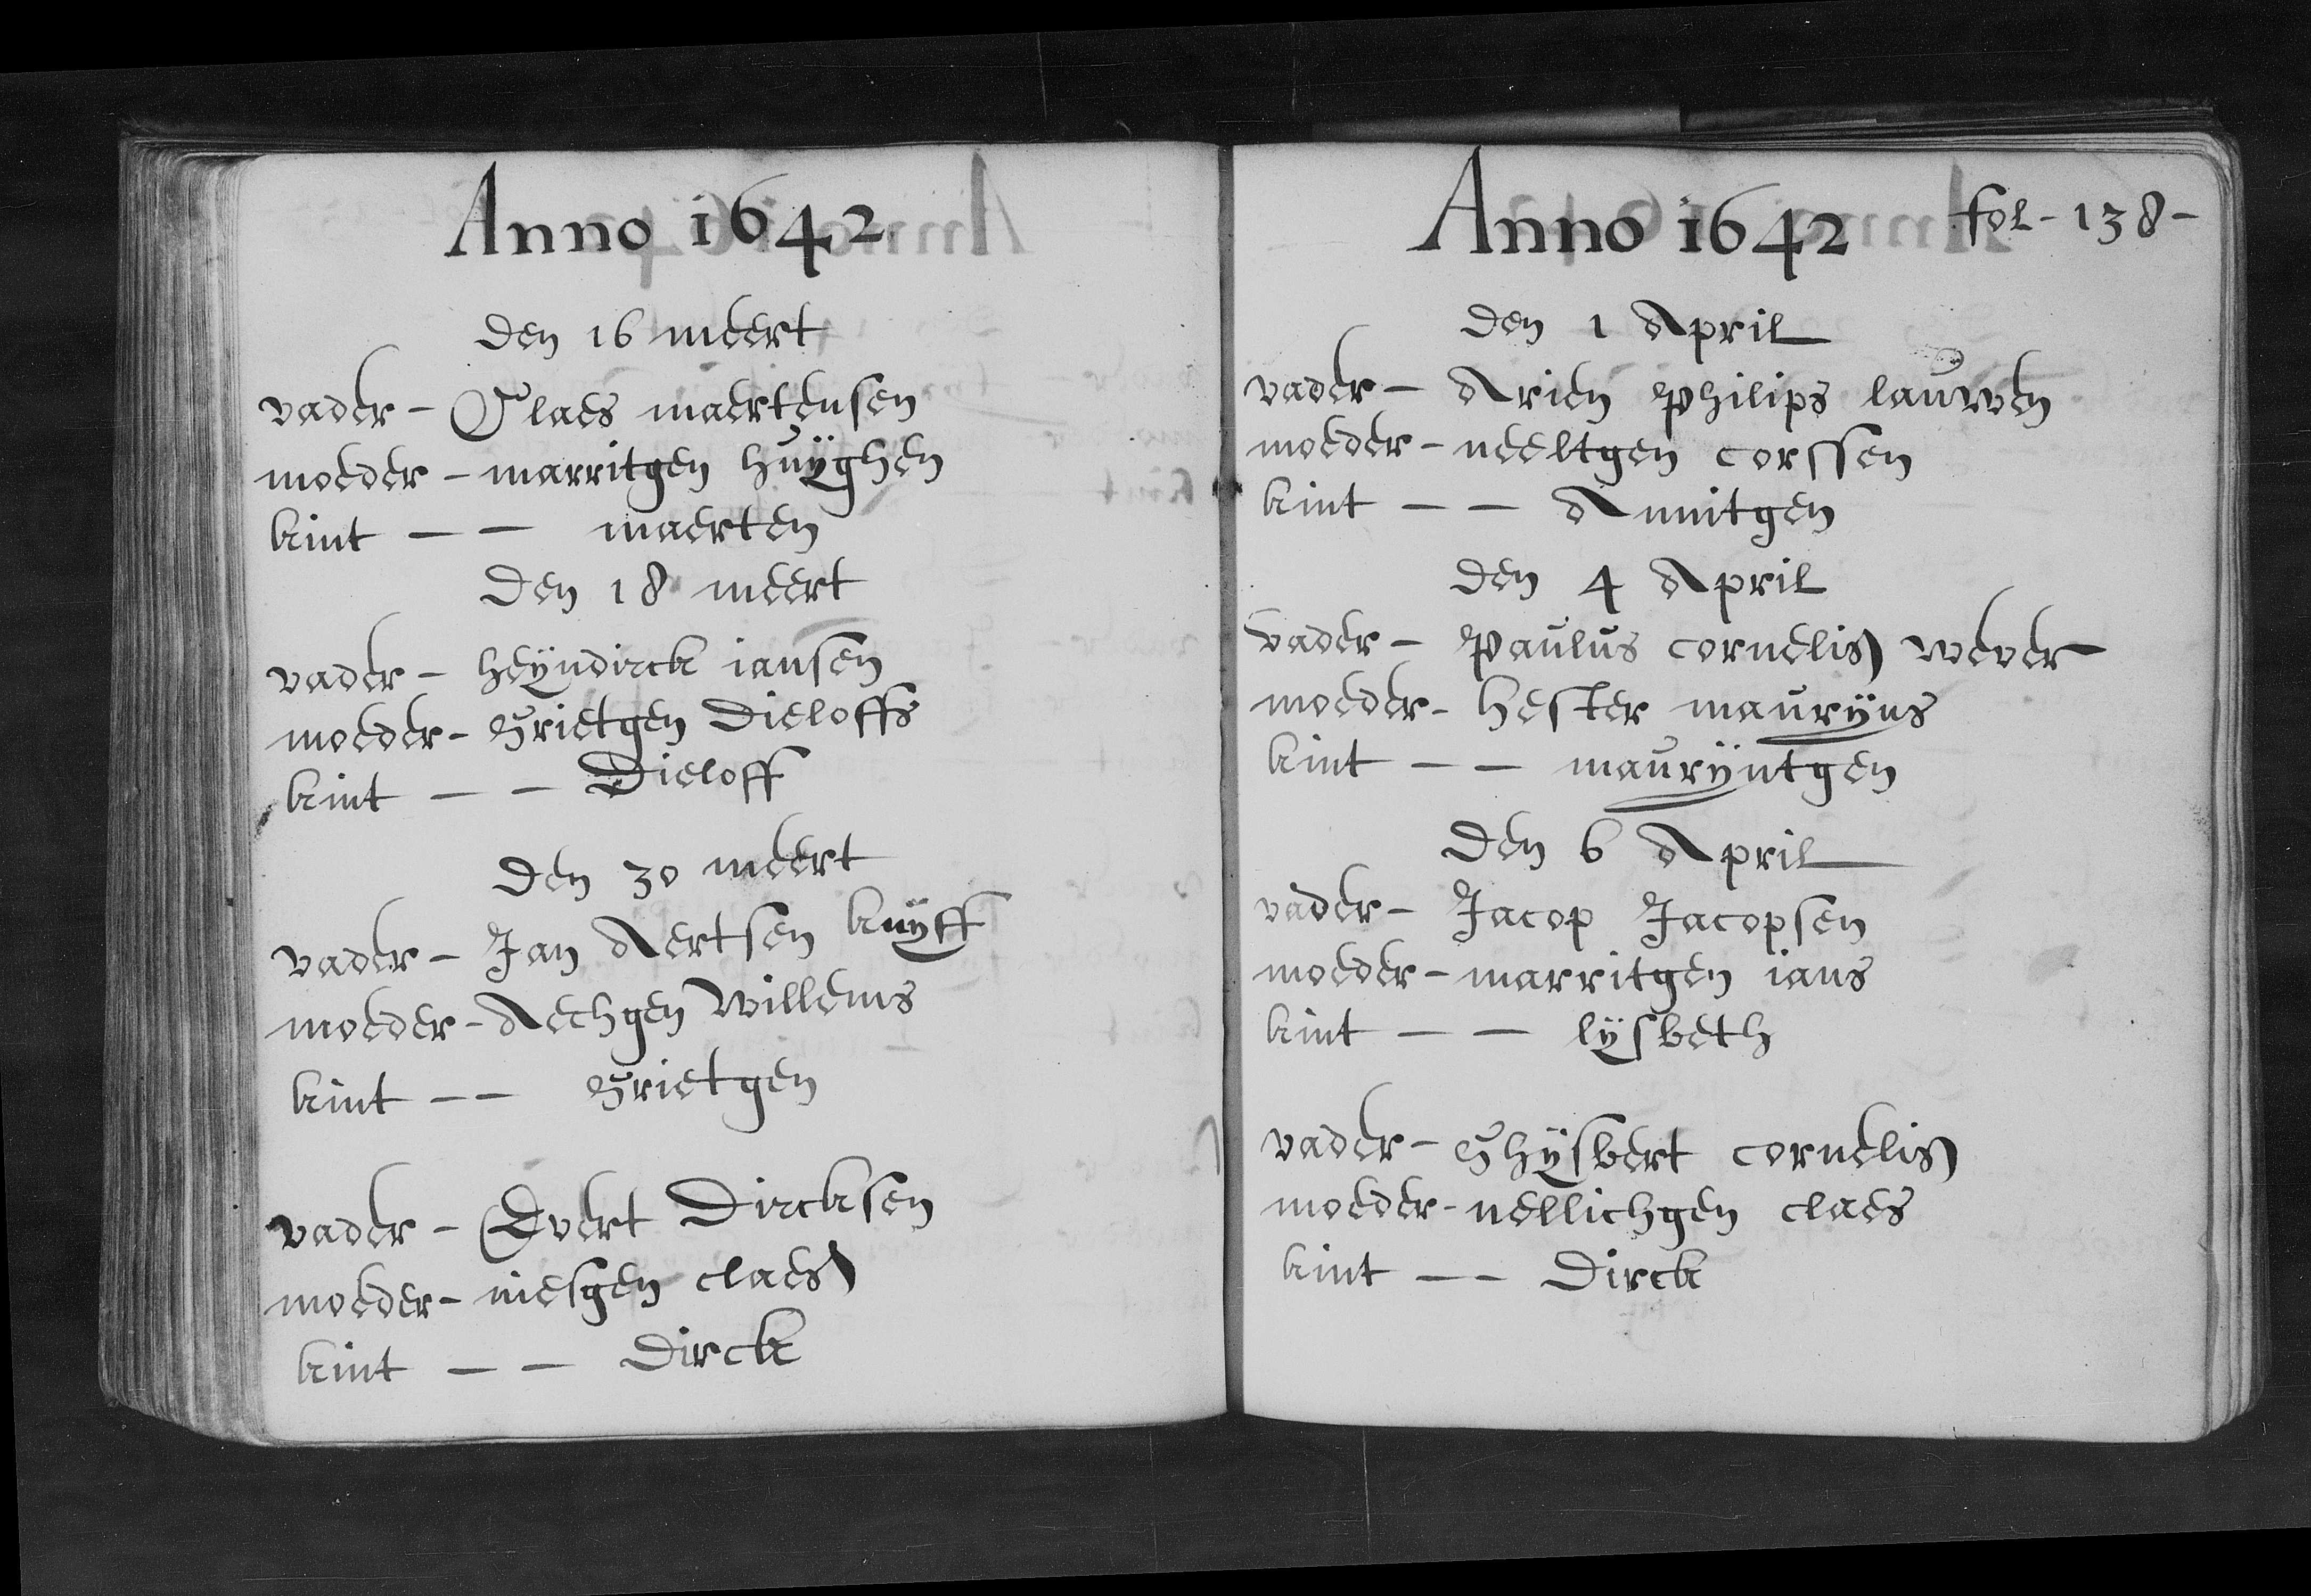 Anno 1642
Den 16 meert
vader - Claes maertensen
moeder - marritgen huÿghen
kint - - maerten
Den 18 meert
vader - heÿndirck iansen
moeder - Grietgen Dieloffs
kint - - Dieloff
Den 30 meert
vader - Jan Aertsen kuÿff
moeder - Aechgen Willems
kint - - Grietgen
vader - Evert Dircksen
moeder - niesgen claes
kint - - Dirck
Anno 1642 fol - 138 -
Den 1 April
vader - Arien Philips lauwen
moeder - neeltgen corssen
kint - - Annitgen
Den 4 April
vader - Paulus cornelis wever
moeder - hester maurÿns
kint - - maurÿntgen
Den 6 April
vader - Jacop Jacopsen
moeder - marritgen ians
kint - - lÿsbeth
vader - Ghÿsbert cornelis
moeder - nellichgen claes
kint - - Dirck